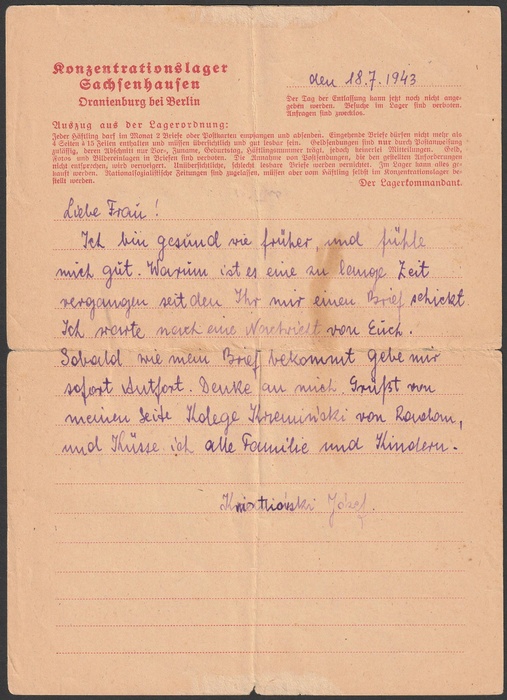 Konzentrationslager
Sachsenhausen
Oranienburg bei Berlin
den 18.7.1943
Der Tag der Entlassung kann jetzt noch nicht ange-
geben werden. Besuche im Lager sind verboten.
Anfragen sind zwecklos.
Auszug aus der Lagerordnung:
Jeder Häftling darf im Monat 2 Briefe oder Postkarten empfangen und absenden. Eingehende Briefe dürfen nicht mehr als
4 Seiten à 15 Zeilen enthalten und müssen übersichtlich und gut lesbar sein. Geldsendungen sind nur durch Postanweisung
zulässig, deren Abschnitt nur Vor-, Zuname, Geburtstag, Häftlingsnummer trägt, jedoch keinerlei Mitteilungen. Geld,
Fotos und Bildereinlagen in Briefen sind verboten. Die Annahme von Postsendungen, die den gestellten Anforderungen
nicht entsprechen, wird verweigert. Unübersichtliche, schlecht lesbare Briefe werden vernichtet. Im Lager kann alles ge-
kauft werden. Nationalsozialistische Zeitungen sind zugelassen, müssen aber vom Häftling selbst im Konzentrationslager be-
stellt werden.
Der Lagerkommandant.
Liebe Frau!
Ich bin gesund wie früher, und fühle
mich gut. Warum ist es eine zu lange Zeit
vergangen seit den Ihr mir einen Brief schickt.
Ich warte nach eine Nachricht von Euch.
Sobald wie mein Brief bekommt gebe mir
sofort Antfort. Denke an mich. Grüßt von
meinen Seite Kolege Krzemiński von
und Küsse ich alle Familie und Kindern.
Józef.